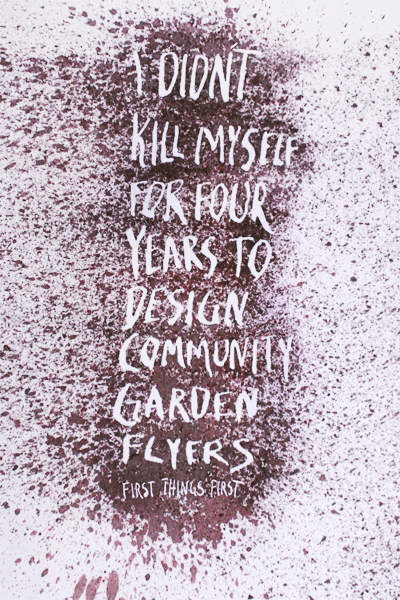 I DIDN'T
KILL MYSELF
FOR FOUR
YEARS TO
DESIGN
COMMUNITY
GARDEN
FLYERS
FIRST THINGS FIRST